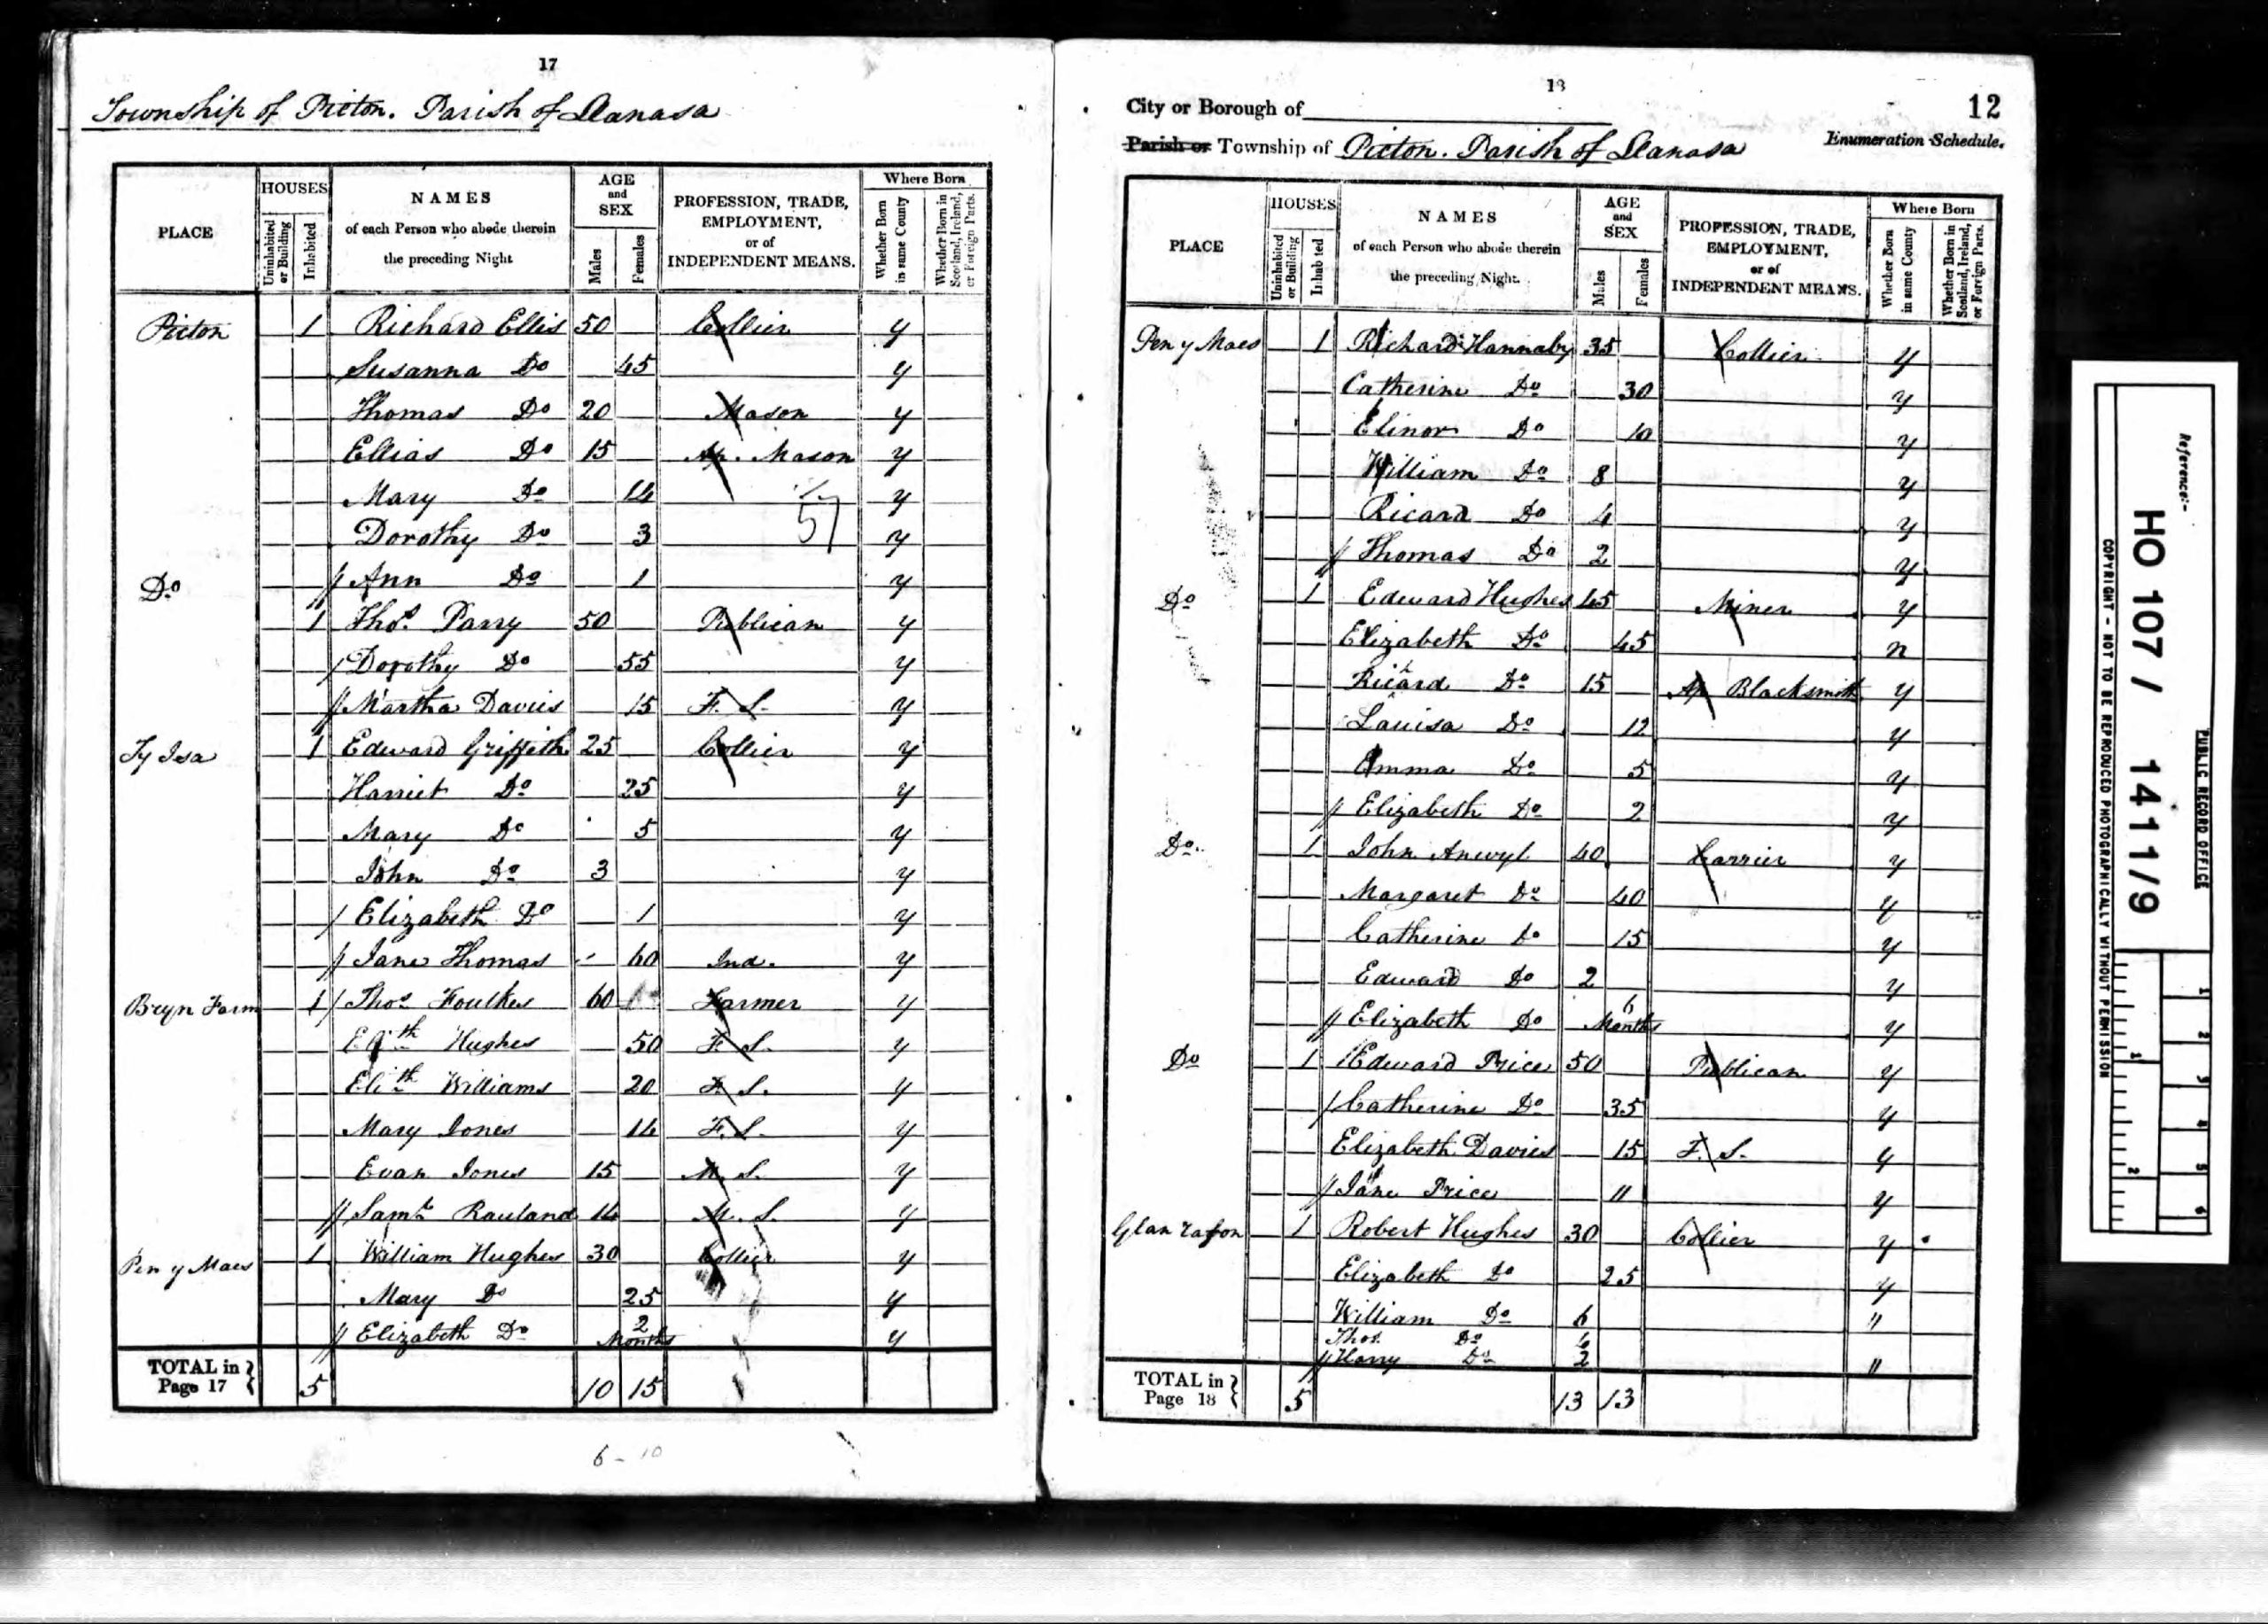 17
Township of Picton. Parish of Llanasa
PLACE
HOUSES
Uninhabited or Building
Inhabited
NAMES
of each Person who abode therein
the preceding Night
AGE
and
SEX
Males
Females
PROFESSION, TRADE,
EMPLOYMENT,
or of
INDEPENDENT MEANS.
Where Born
Whether Born in same County
Whether Born in Scotland, Ireland, or Foreign Parts.
Picton 1 Richard Ellis 50 Collier y
Susanna Do 45 y
Thomas Do 20 Mason y
Ellias Do 15 Ap. Mason y
Mary Do 14 y
57
Dorothy Do 3 y
Do // Ann Do 1 y
1 Thos. Parry 50 Publican y
/ Dorothy Do 55 y
// Martha Davies 15 F. S. y
Ty Isa 1 Edward Griffith 25 Collier y
Harriet Do 25 y
Mary Do 5 y
John Do 3 y
/ Elizabeth Do 1 y
// Jane Thomas 60 Ind. y
Bryn Farm 1 / Thos Foulkes 60 Farmer y
Elith Hughes 50 F. S. y
Elith Williams 20 F. S. y
Mary Jones 14 F. S. y
Evan Jones 15 M. S. y
// Saml. Rauland 14 M. S. y
Pen y Maes 1 William Hughes 30 Collier y
Mary Do 25 y
// Elizabeth Do 2 Months y
TOTAL in } Page 17 { 5 10 15
6 - 10
18
12
City or Borough of
Parish or Township of Picton. Parish of Llanasa
Enumeration Schedule.
PLACE
HOUSES
Uninhabited or Building
Inhabited
NAMES
of each Person who abode therein
the preceding Night.
AGE
and
SEX
Males
Females
PROFESSION, TRADE,
EMPLOYMENT,
or of
INDEPENDENT MEANS.
Where Born
Whether Born in same County
Whether Born in Scotland, Ireland, or Foreign Parts.
Pen y Maes 1 Richard Hannaby 35 Collier y
Catherine Do 30 y
Elinor Do 10 y
William Do 8 y
Ricard Do 4 y
// Thomas Do 2 y
Do 1 Edward Hughes 45 Miner y
Elizabeth Do 45 n
Richard Do 15 Ap Blacksmith y
Louisa Do 12 y
Emma Do 5 y
// Elizabeth Do 2 y
Do. 1 John Anwyl 40 Carrier y
Margaret Do 40 y
Catherine Do 15 y
Edward Do 2 y
// Elizabeth Do 6 Months y
Do 1 Edward Price 50 Publican y
/ Catherine Do 35 y
Elizabeth Davies 15 F. S. y
// Jane Price 11 y
Glan rafon 1 Robert Hughes 30 Collier y
Elizabeth Do 25 y
William Do 6 "
Thos. Do 6
// Harry Do 2 "
TOTAL in } Page 18 { 5 13 13
Reference:-
HO 107 / 1411/9
PUBLIC RECORD OFFICE
COPYRIGHT - NOT TO BE REPRODUCED PHOTOGRAPHICALLY WITHOUT PERMISSION
1 2 3 4 5 6
1 2